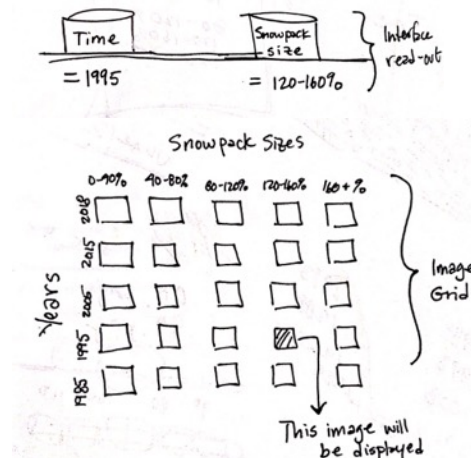 Time
Snowpack
size
Interface
read-out
= 1995
= 120-160%
Snowpack Sizes
0-40% 40-80% 80-120% 120-160% 160+%
Years
2018
2015
2005
1995
1985
Image
Grid
This image will
be displayed